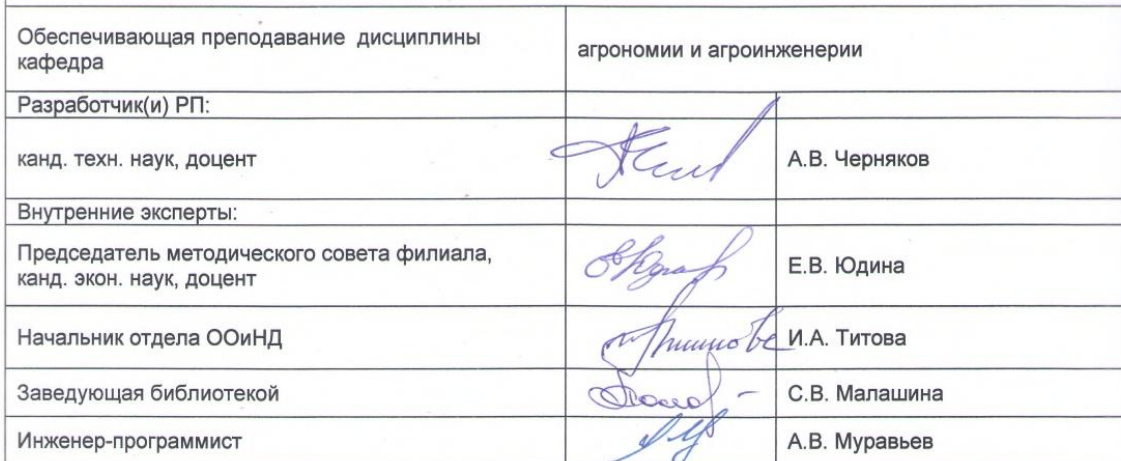 Обеспечивающая преподавание дисциплины
кафедра
агрономии и агроинженерии
Разработчик(и) РП:
канд. техн. наук, доцент
А.В. Черняков
Внутренние эксперты:
Председатель методического совета филиала,
канд. экон. наук, доцент
Е.В. Юдина
Начальник отдела ООиНД
И.А. Титова
Заведующая библиотекой
С.В. Малашина
Инженер-программист
А.В. Муравьев